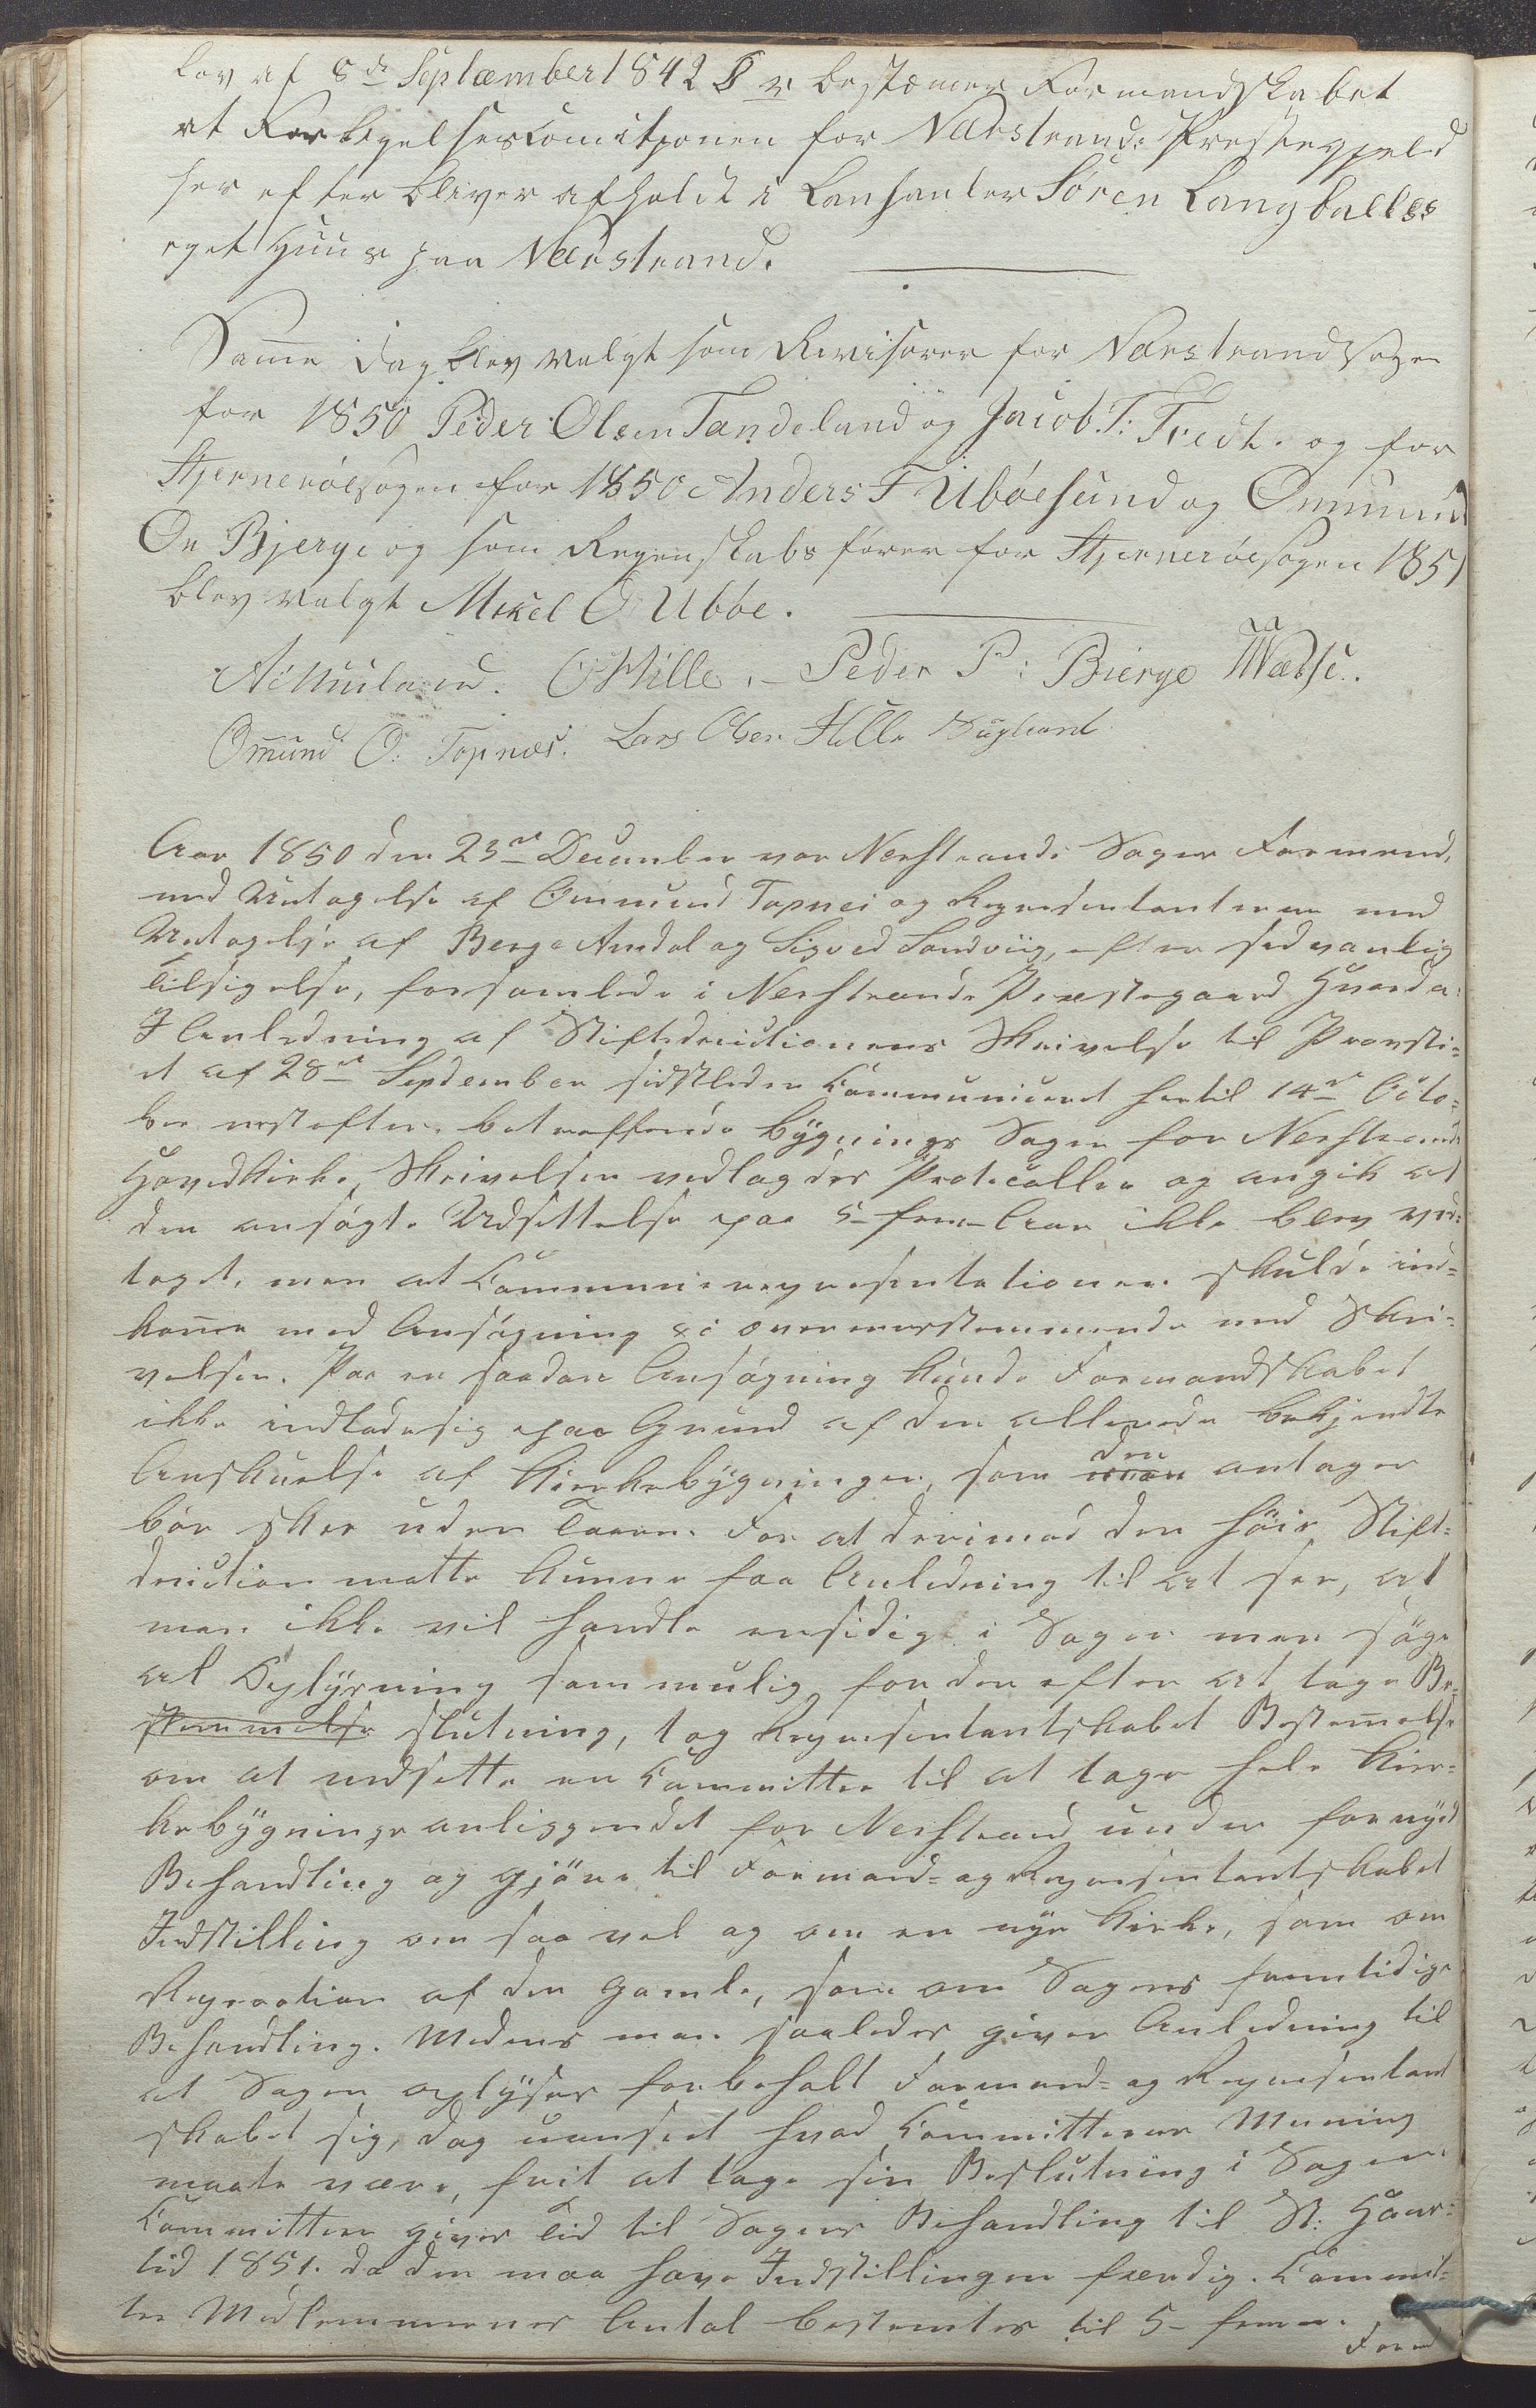 Lov af 8de September 1842 § 2 bestemer Formandskabet
at Forligelsescomisjonen for Nærstrands Prestegjeld
her efter bliver afholdt i Lanhanler Sören Langballes
eget Huus paa Nærstrand.
Samme Dag blev valgt som Revisorer for Nærstrand Sogn
for 1850 Peder Olsen Tandeland og Jacob T: Tvedt. og for
Hjernerøe sogen for 1850 Anders T Ubøesund og Ommund
On Bjerge og som Regenskabs fører for Hjernerøe sogen 1851
blev valgt Mikel O Ubøe.
O Hille. Peder P: Bierge Wæsse.
Omund O: Topnæs. Lars Olsen Hille
Aar 1850 den 23de December var Nerstrands Sogns Formænd,
med Undtagelse af Ommund Topnes og Representanterne med
Undtagelse af Berge Amdal og Sigved Sandviig, efter sedvanlig
Tilsigelse, forsamlede i Nerstrands Præstegaard Hvarda.
I Anledning af Stiftsdirectionens Skrivelse til Provsti=
et af 28de September sidstleden Communiceret hertil 14de Octo=
ber nestefter betreffende bÿgnings Sagen for Nerstrands
Hovedkirke, Skrivelsen vedlagdes Protocollen og angik at
den ansøgte Udsettelse paa 5 fem Aar ikke blev ved=
taget, men at Communerepresentationen skulde ind=
komme med Ansøgning &c overeensstemmende med Skri=
velsen. Paa en saadan Ansøgning kunde Formandskabet
ikke indlade sig paa Grund af den allerede bekjendte
Anskuelse af Kirkebÿgningen, som den antager
bör skee uden Taarn. For at derimod den höie Stift=
direction motte kunne faa Anledning til at see, at
man ikke vil handle ensidigt i Sagen men söge
al Oplÿsning som mulig for derefter at tage Be=
stemmelse slutning, tog Representantskabet Bestemelse
om at nedsette en Committee til at tage hele Kir=
kebÿgnings anliggendet for Nerstrand under fornÿet
Behandling og gjöre til Formand= og Representantskabet
Indstilling om saa vel og om en nÿe Kirke, som om
Reparation af den gamle, som om Sagens fremtidige
Behandling. Medens man saaledes giver Anledning til
at Sagen oplÿses forbeholdt Formand= og Representant
skabet sig, dog uanseet hvad Committeens Mening
maate være, frit at tage sin Beslutning i Sagen.
Committeen gives Tid til Sagens Behandling til St: Hans=
tid 1851. da den maa have Indstillingen færdig. Commit=
tee Medlemmernes Antal bestemtes til 5 - fem.
Form